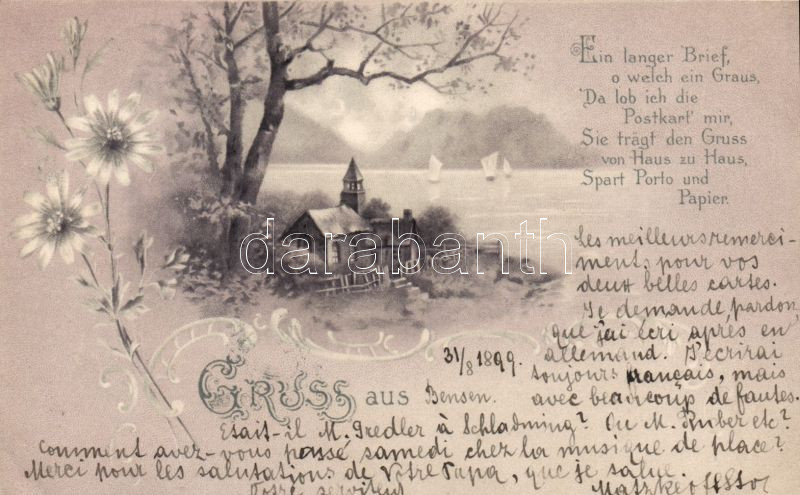 Ein langer Brief,
o welch ein Graus,
Da lob ich die
Postkart' mir,
Sie trägt den Gruss
von Haus zu Haus,
Spart Porto und
Papier.
darabanth
Les meilleurs remerci-
ments pour vos
deux belles cartes.
Je demande, pardon,
que j'ai écri après en
allemand. J'écrirai
toujours français, mais
avec beaucoup de fautes.
31/8 1899.
Gruss aus Bensen.
Etait-il M. Gredler à Schladming? Ou M. Huber etc?
Comment avez-vous passé samedi chez la musique de place?
Merci pour les salutations de Votre Papa, que je salue.
Votre serviteur